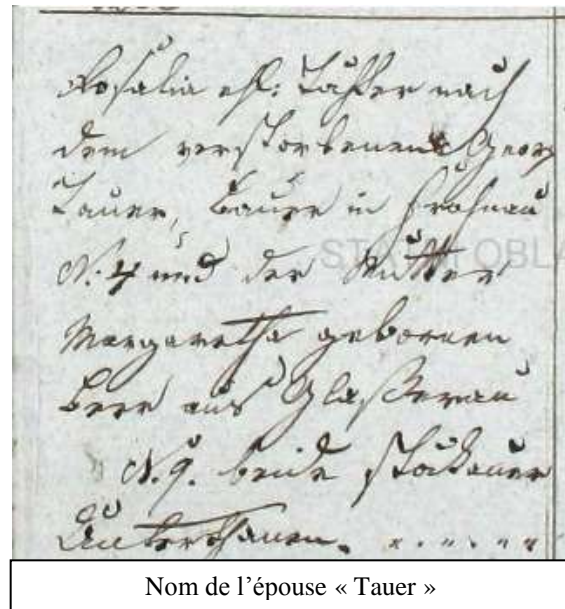 Rosalia ehl: Tochter nach
dem verstorbenen Georg
Tauer, Bauer in Frohnau
N. 4 und der Mutter
Margaretha gebornen
Beer aus Glaserau
N. 9. beide Stockauer
Unterthanen.
Nom de l’épouse « Tauer »